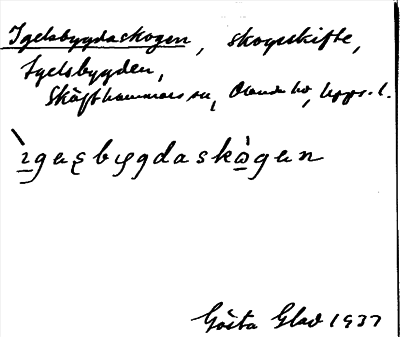 Igelsbygdaskogen, skogsskifte,
Igelsbygden,
Skäfthammars sn, Olands hd, Upps. l.
ìgesbygdaskògen
Gösta Glad 1937